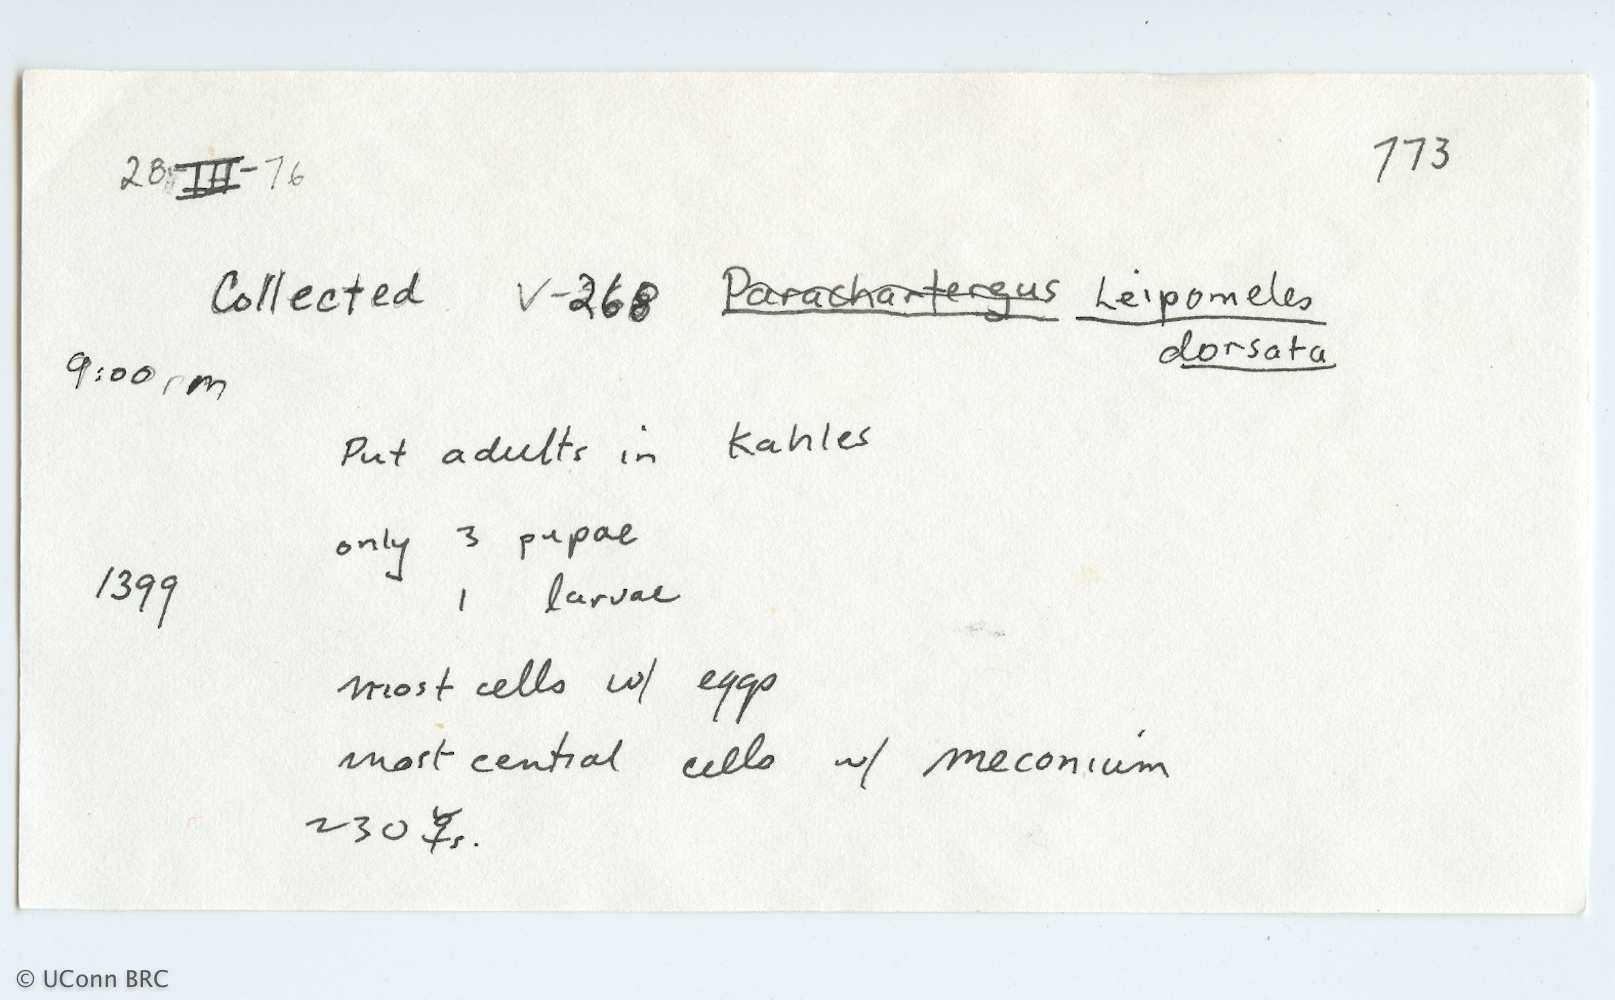 28-III-76
773
Collected V-268 Parachartergus Leipomeles
dorsata
9:00 pm
Put adults in Kahles
only 3 pupae
1399
1 larvae
most cells w/ eggs
most central cells w/ meconium
~30 ☿s.
© UConn BRC